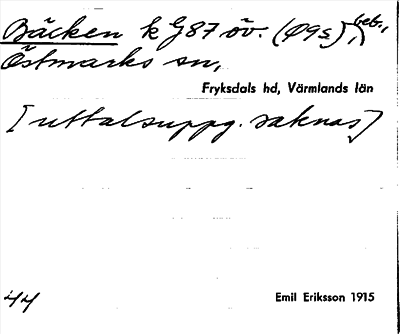 Bäcken k G87 öv. (Ø9s), beb.,
Östmarks sn,
Fryksdals hd, Värmlands län
[uttalsuppg. saknas]
44
Emil Eriksson 1915